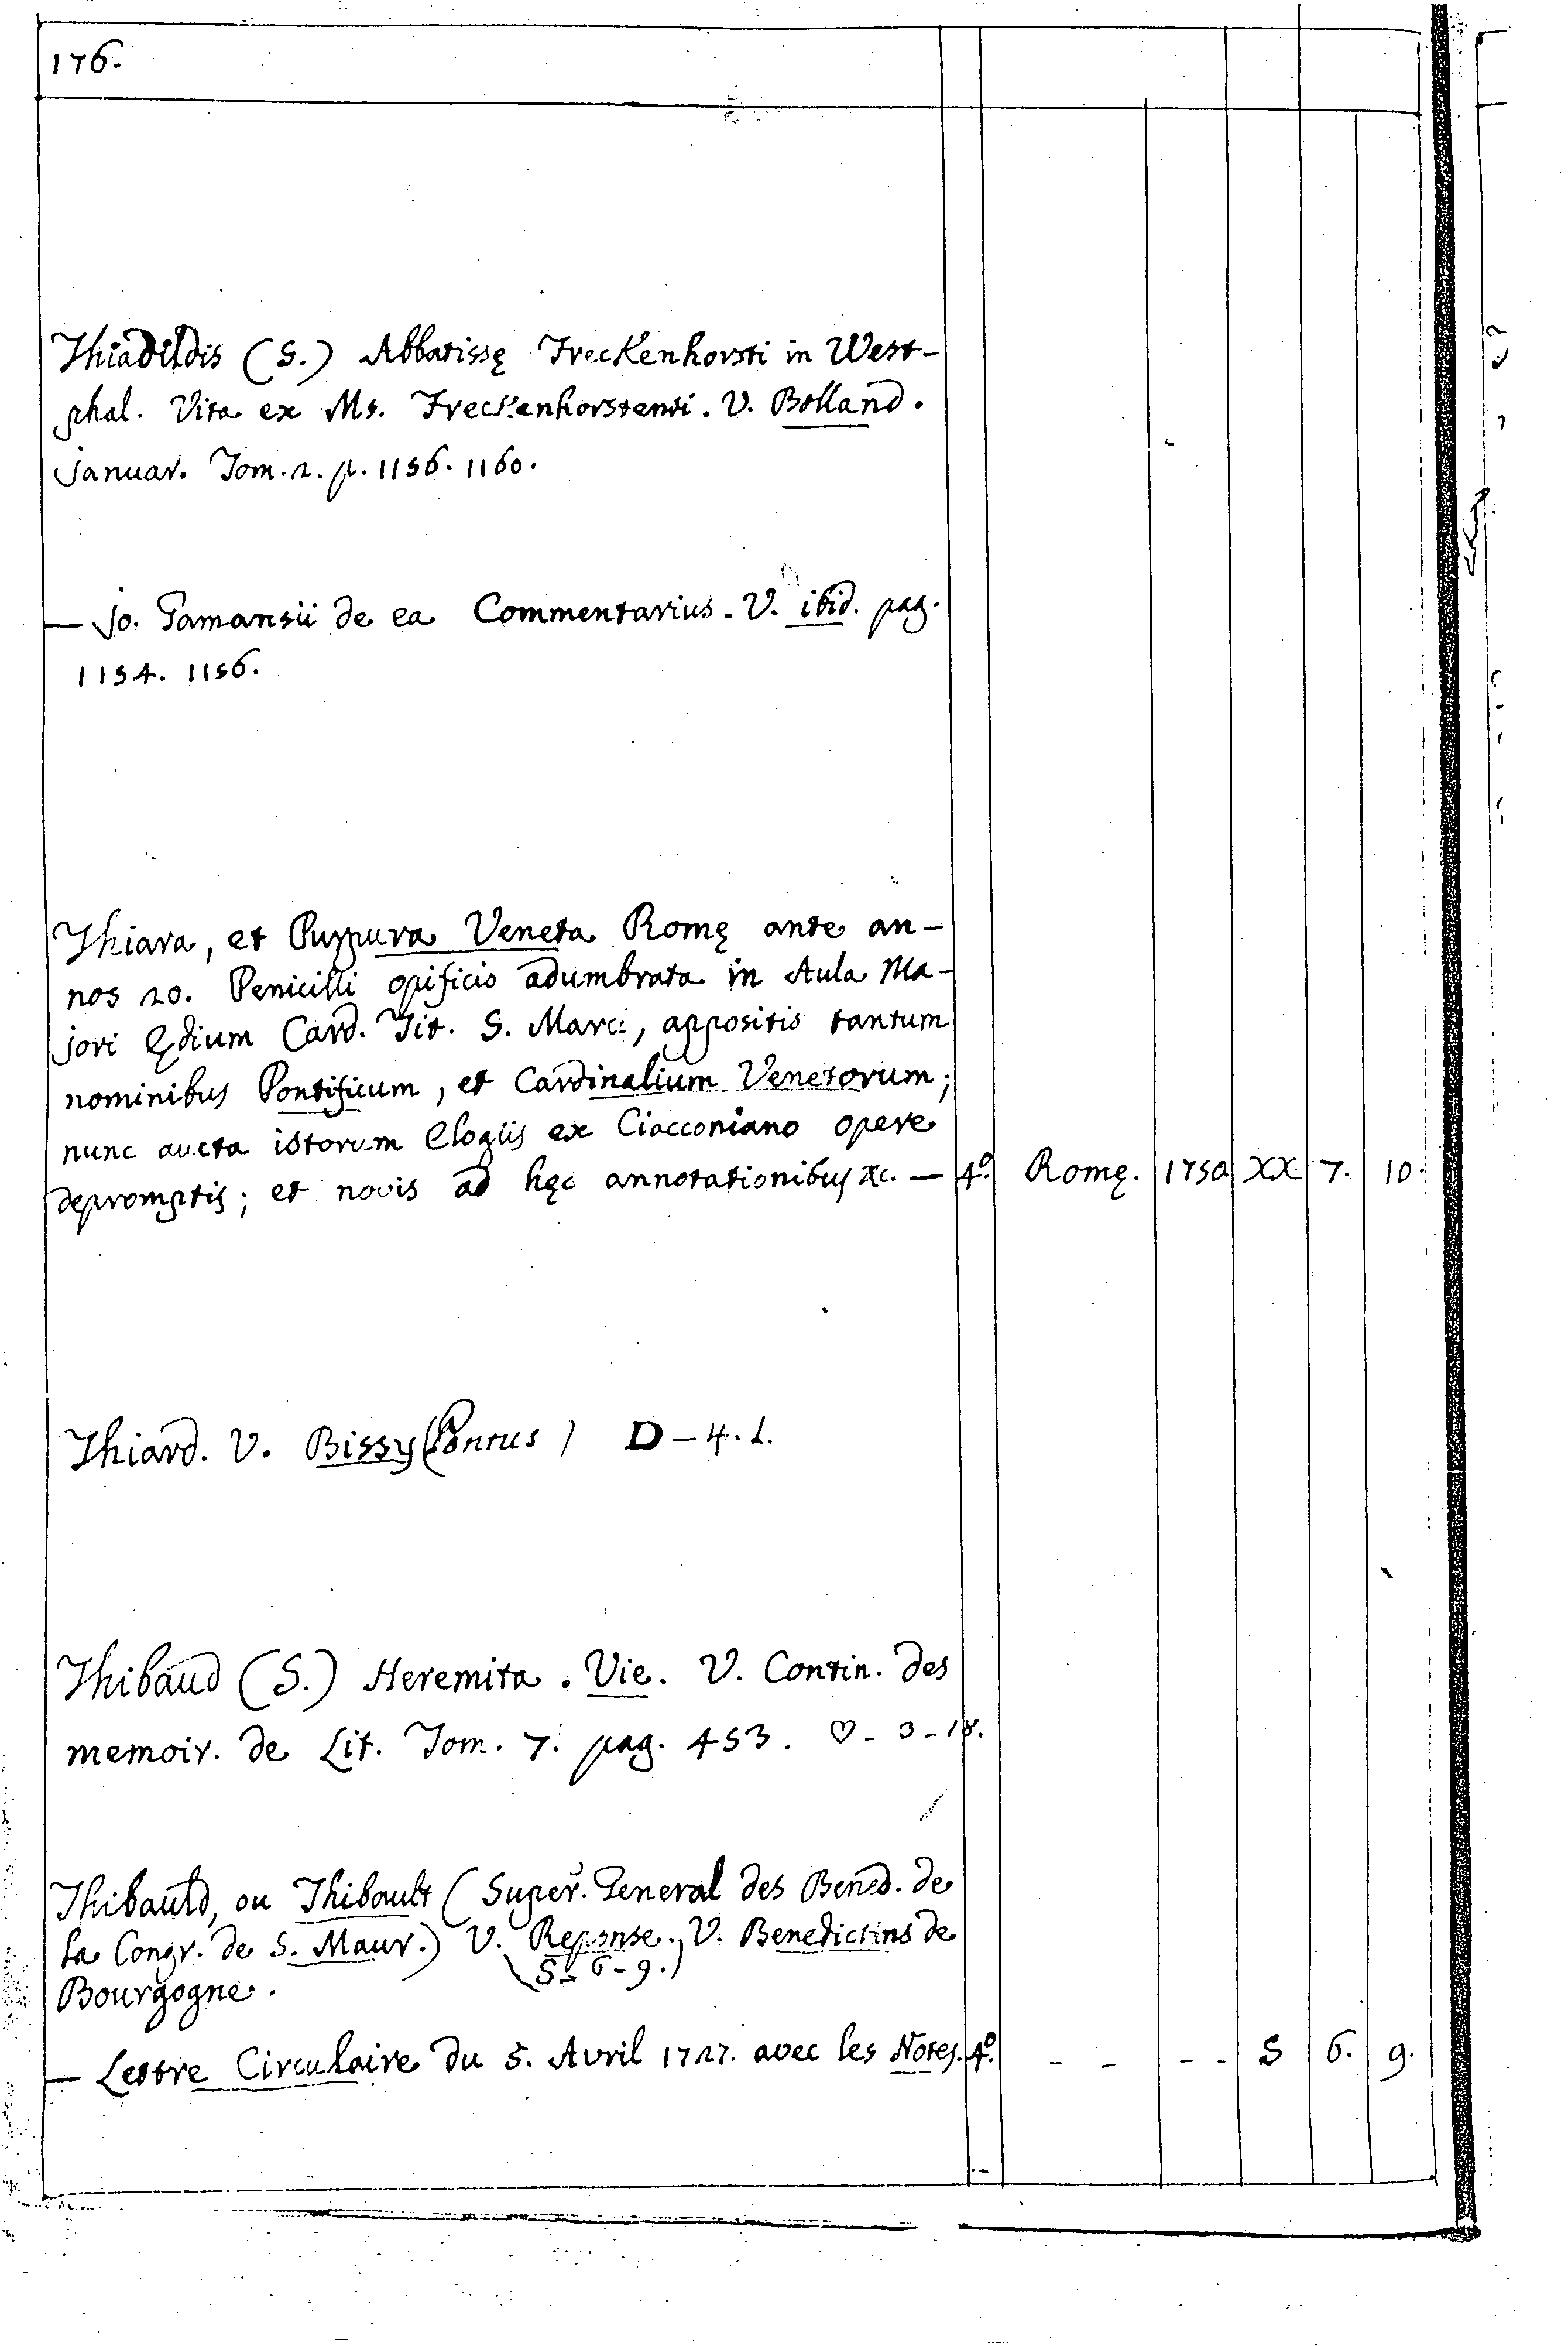 176.
Thiadildis (S.) Abbatissę Freckenhorsti in West-
phal. Vita ex Ms. Freckenhorstensi. V. Bolland.
Januar. Tom. 2. p. 1156. 1160.
— Jo. Gamansii de ea Commentarius. V. ibid. pag.
1154. 1156.
Thiara, et Purpura Veneta Romę ante an-
nos 20. Penicilli opificio adumbrata in Aula Ma-
jori Ędium Card. Tit. S. Marci, appositis tantum
nominibus Pontificum, et Cardinalium Venetorum;
nunc aucta istorum Elogiis ex Ciacconiano opere
depromptis; et novis ad hęc annotationibus &c. — 4.º Romę. 1750 XX 7. 10.
Thiard. V. Bissy (Pontus) D - 4. 1.
Thibaud (S.) Heremita. Vie. V. Contin. des
memoir. de Lit. Tom. 7. pag. 453. ♡ - 3 - 18.
Thibauld, ou Thibault (Super. General des Bened. de
la Congr. de S. Maur.) V. Reponse. V. Benedictins de
(S - 6 - 9.)
Bourgogne.
— Lettre Circulaire du 5. Avril 1727. avec les Notes. 4.º - - - - S 6. 9.